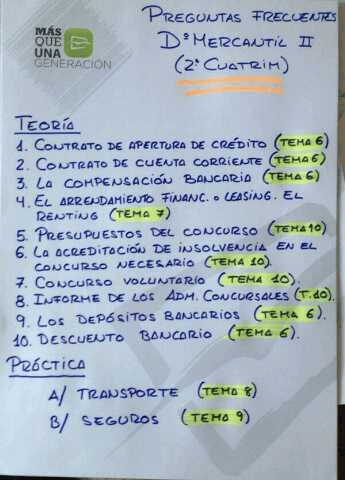 MÁS
QUE
UNA
GENERACIÓN
PREGUNTAS FRECUENTES
Dº MERCANTIL II
(2º CUATRIM)
TEORÍA
1. CONTRATO DE APERTURA DE CRÉDITO (TEMA 6)
2. CONTRATO DE CUENTA CORRIENTE (TEMA 6)
3. LA COMPENSACIÓN BANCARIA (TEMA 6)
4. EL ARRENDAMIENTO FINANC. o LEASING. EL
RENTING (TEMA 7)
5. PRESUPUESTOS DEL CONCURSO (TEMA 10)
6. LA ACREDITACIÓN DE INSOLVENCIA EN EL
CONCURSO NECESARIO (TEMA 10).
7. CONCURSO VOLUNTARIO (TEMA 10).
8. INFORME DE LOS ADM. CONCURSALES (T.10).
9. LOS DEPÓSITOS BANCARIOS (TEMA 6).
10. DESCUENTO BANCARIO (TEMA 6).
PRÁCTICA
A/ TRANSPORTE (TEMA 8)
B/ SEGUROS (TEMA 9)